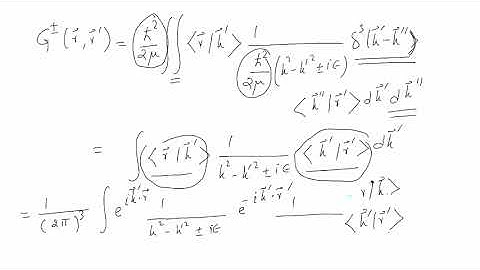 G^±(r⃗, r⃗') = ħ²/2μ ∬ ⟨r⃗|k⃗'⟩ 1/(ħ²/2μ (k² - k'² ± iϵ)) δ³(k⃗' - k⃗'')
⟨k⃗''|r⃗'⟩ dk⃗' dk⃗''
= ∫ ⟨r⃗|k⃗'⟩ 1/(k² - k'² ± iϵ) ⟨k⃗'|r⃗'⟩ dk⃗'
r|k⃗⟩
= 1/(2π)³ ∫ e^{ik⃗'·r⃗} 1/(k² - k'² ± iϵ) e^{-ik⃗'·r⃗'} 1
⟨k⃗'|r⃗'⟩